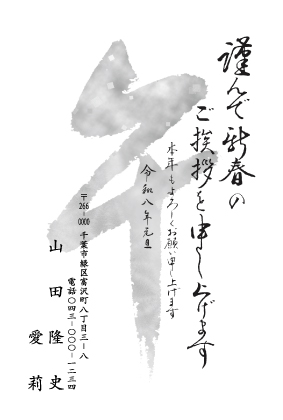 午
謹んで新春の
ご挨拶を申し上げます
本年もよろしくお願い申し上げます
令和八年元旦
〒266-0000 千葉市緑区富沢町八丁目三-八
電話〇四三-〇〇〇-一二三四
山田隆史
愛莉